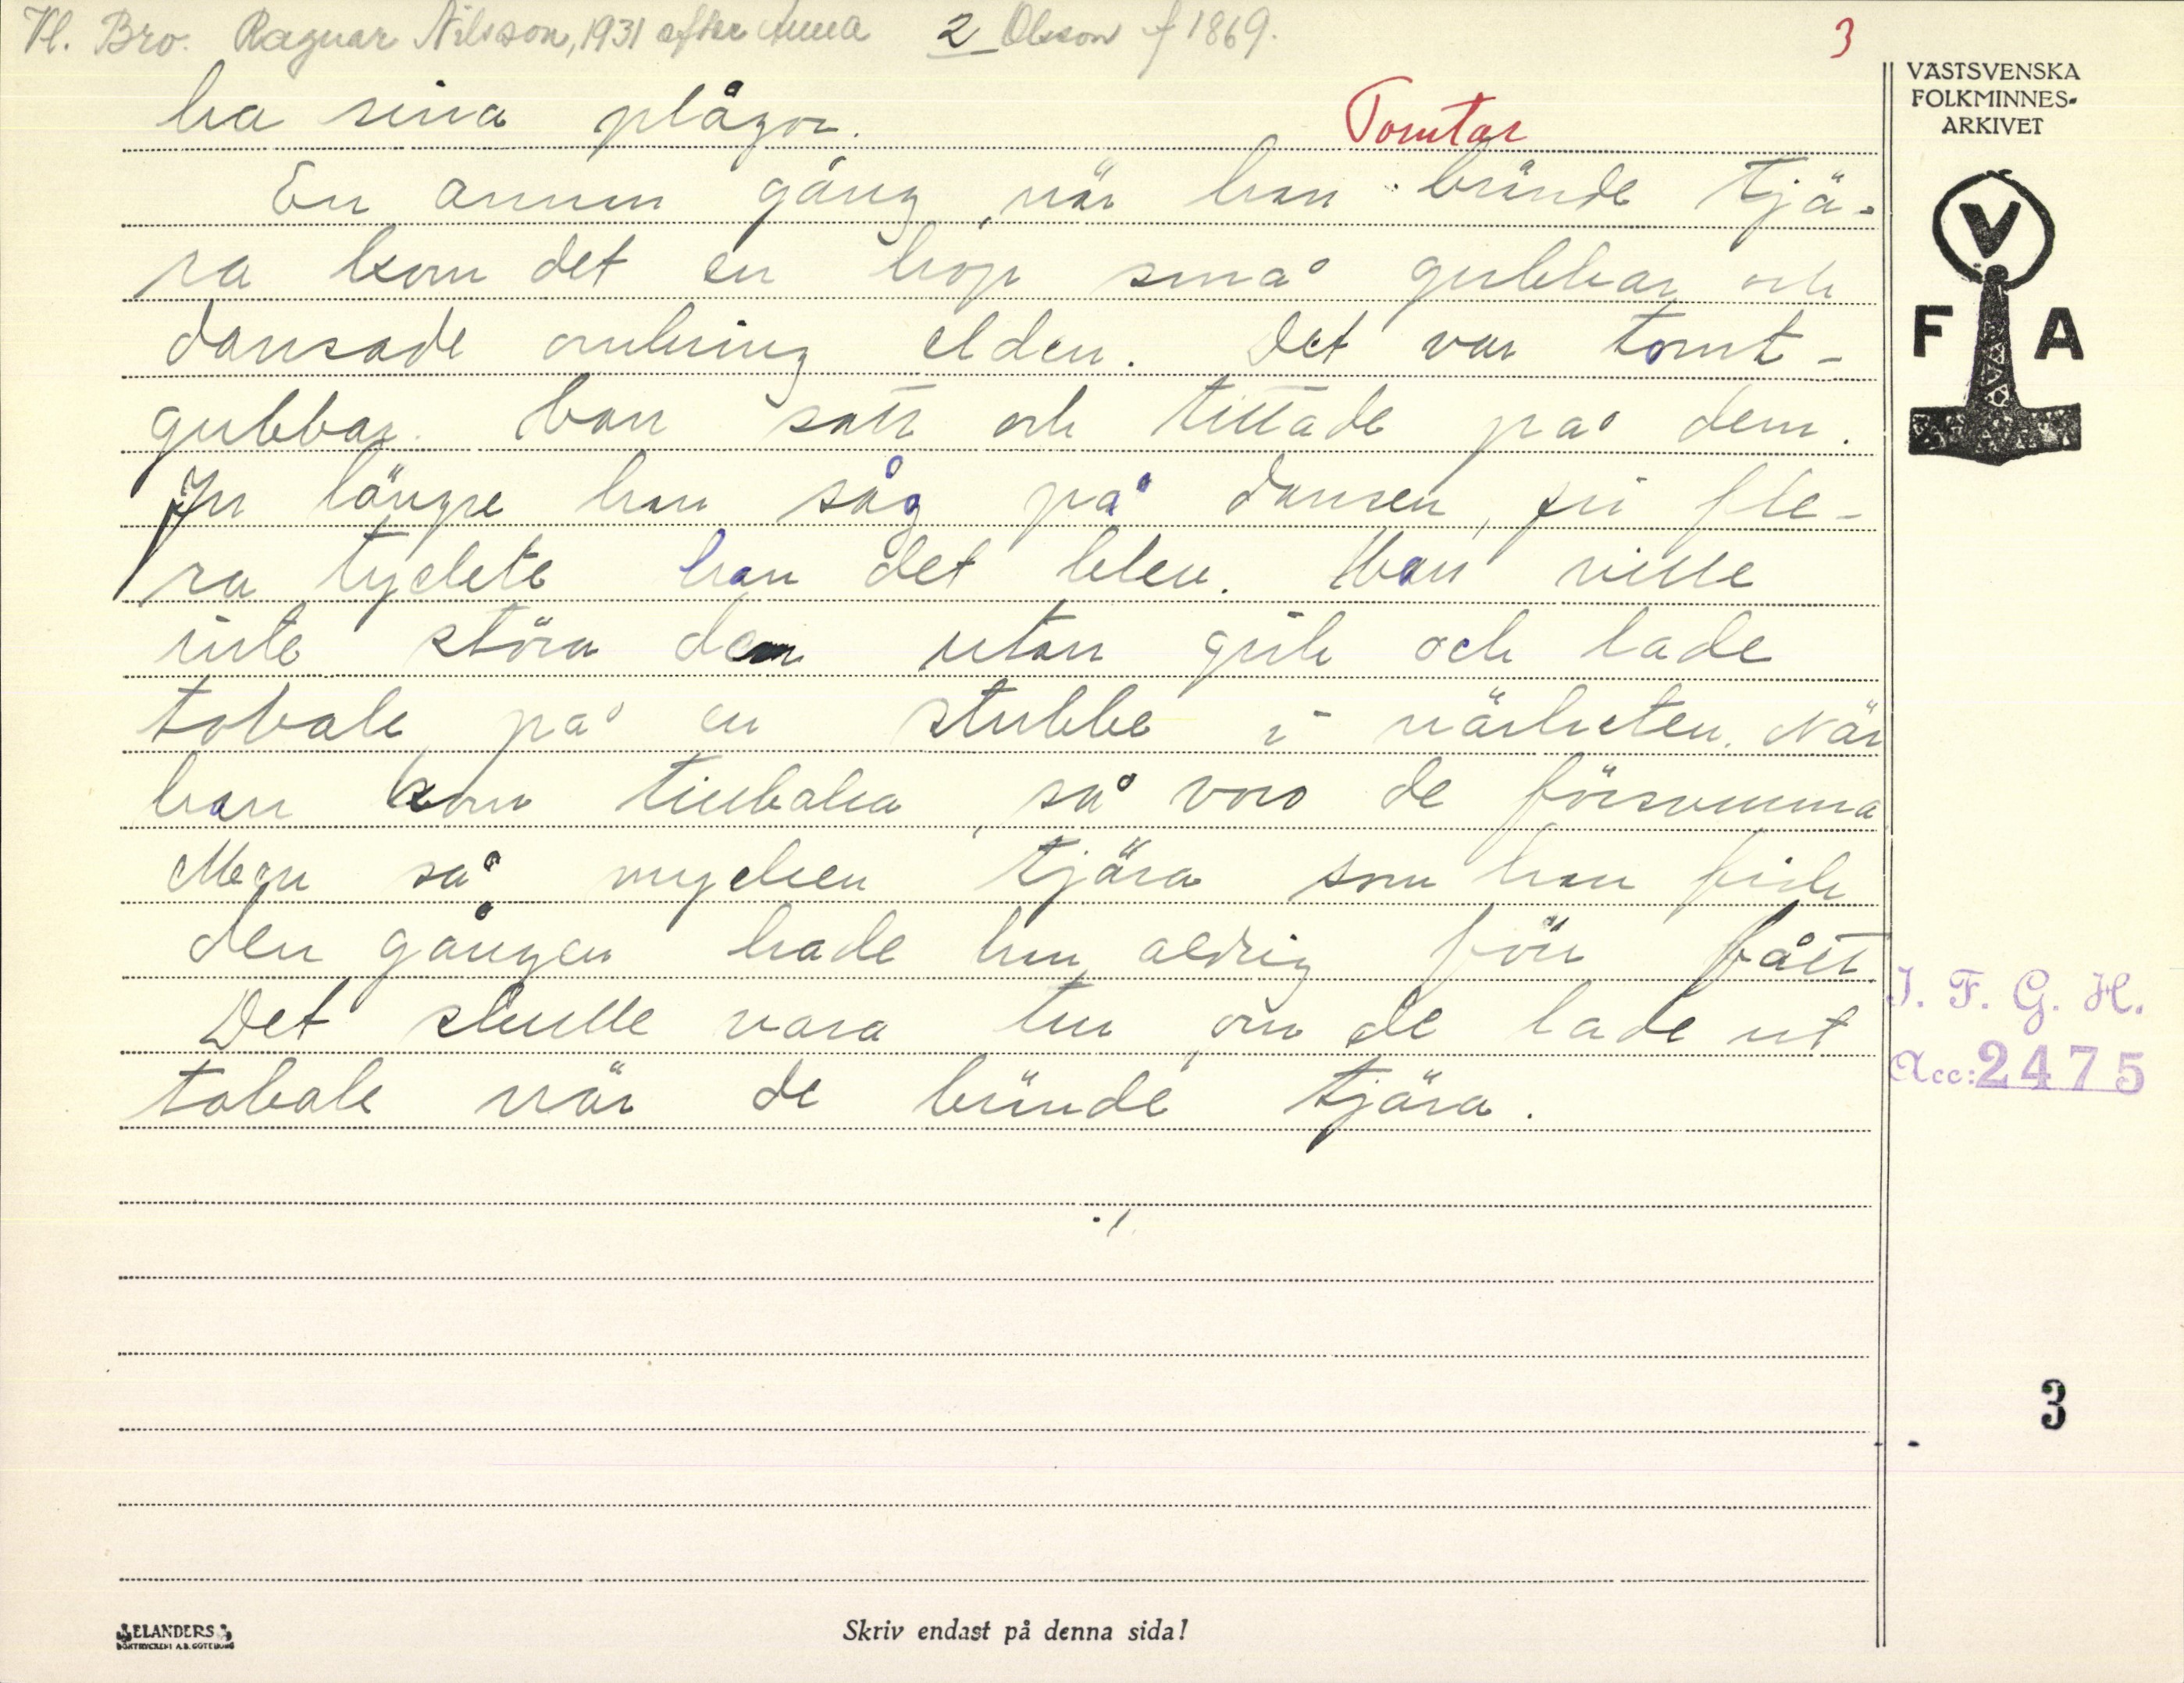 Vl. Bro. Ragnar Nilsson, 1931 efter Anna 2 Olsson f 1869.
3
VÄSTSVENSKA
FOLKMINNES-
ARKIVET
ha sina plågor.
Tomtar
En annan gång, när han brände tjä-
ra kom det en hop små gubbar och
dansade omkring elden. Det var tomt-
gubbar. Han satt och tittade på dem.
Ju längre han såg på dansen, ju fle-
ra tyckte han det blev. Han ville
inte störa dem utan gick och lade
tobak på en stubbe i närheten. När
han kom tillbaka, så voro de försvunna
Men så mycken tjära som han fick
den gången hade han aldrig förr fått
Det skulle vara tur, om de lade ut
tobak när de brände tjära.
V
F A
I. F. G. H.
Acc: 2475
3
ELANDERS
BOKTRYCKERI A.B. GÖTEBORG
Skriv endast på denna sida!